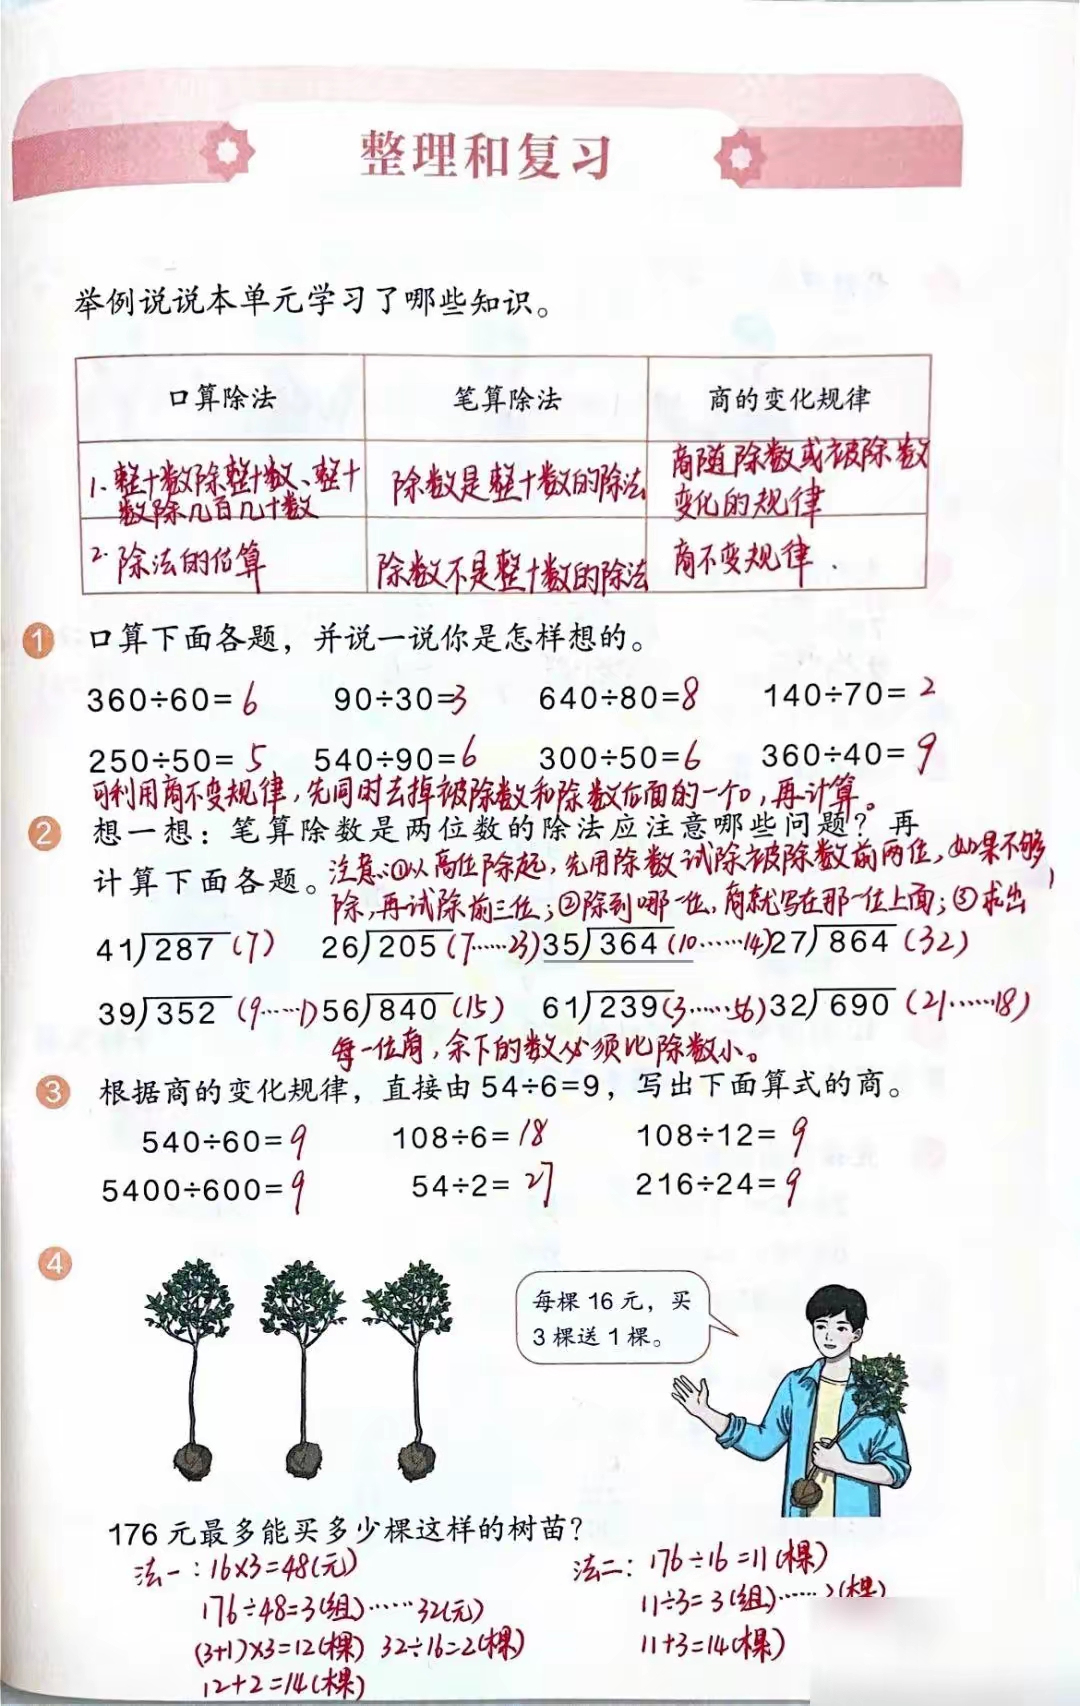 整理和复习
举例说说本单元学习了哪些知识。
口算除法 笔算除法 商的变化规律
1.整十数除整十数、整十数除几百几十数 除数是整十数的除法 商随除数或被除数变化的规律
2.除法的估算 除数不是整十数的除法 商不变规律.
1 口算下面各题，并说一说你是怎样想的。
360÷60=6 90÷30=3 640÷80=8 140÷70=2
250÷50=5 540÷90=6 300÷50=6 360÷40=9
可利用商不变规律,先同时去掉被除数和除数后面的一个0,再计算。
2 想一想：笔算除数是两位数的除法应注意哪些问题？再
计算下面各题。
注意:①从高位除起,先用除数试除被除数前两位,如果不够
除,再试除前三位;②除到哪一位,商就写在那一位上面;③求出
41)287(7) 26)205(7……23) 35)364(10……14) 27)864(32)
39)352(9……1) 56)840(15) 61)239(3……56) 32)690(21……18)
每一位商,余下的数必须比除数小。
3 根据商的变化规律，直接由54÷6=9，写出下面算式的商。
540÷60=9 108÷6=18 108÷12=9
5400÷600=9 54÷2=27 216÷24=9
4
每棵16元，买
3棵送1棵。
176元最多能买多少棵这样的树苗？
法一:16×3=48(元) 法二:176÷16=11(棵)
176÷48=3(组)……32(元) 11÷3=3(组)……2(棵)
(3+1)×3=12(棵) 32÷16=2(棵) 11+3=14(棵)
12+2=14(棵)